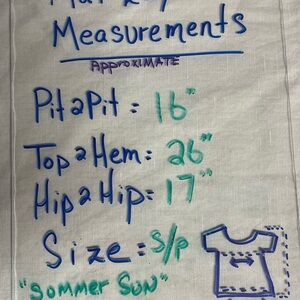 Measurements
APPROXIMATE
Pit2Pit = 16"
Top2Hem = 26"
Hip2Hip = 17"
Size = S/P
"SOMMER SUN"